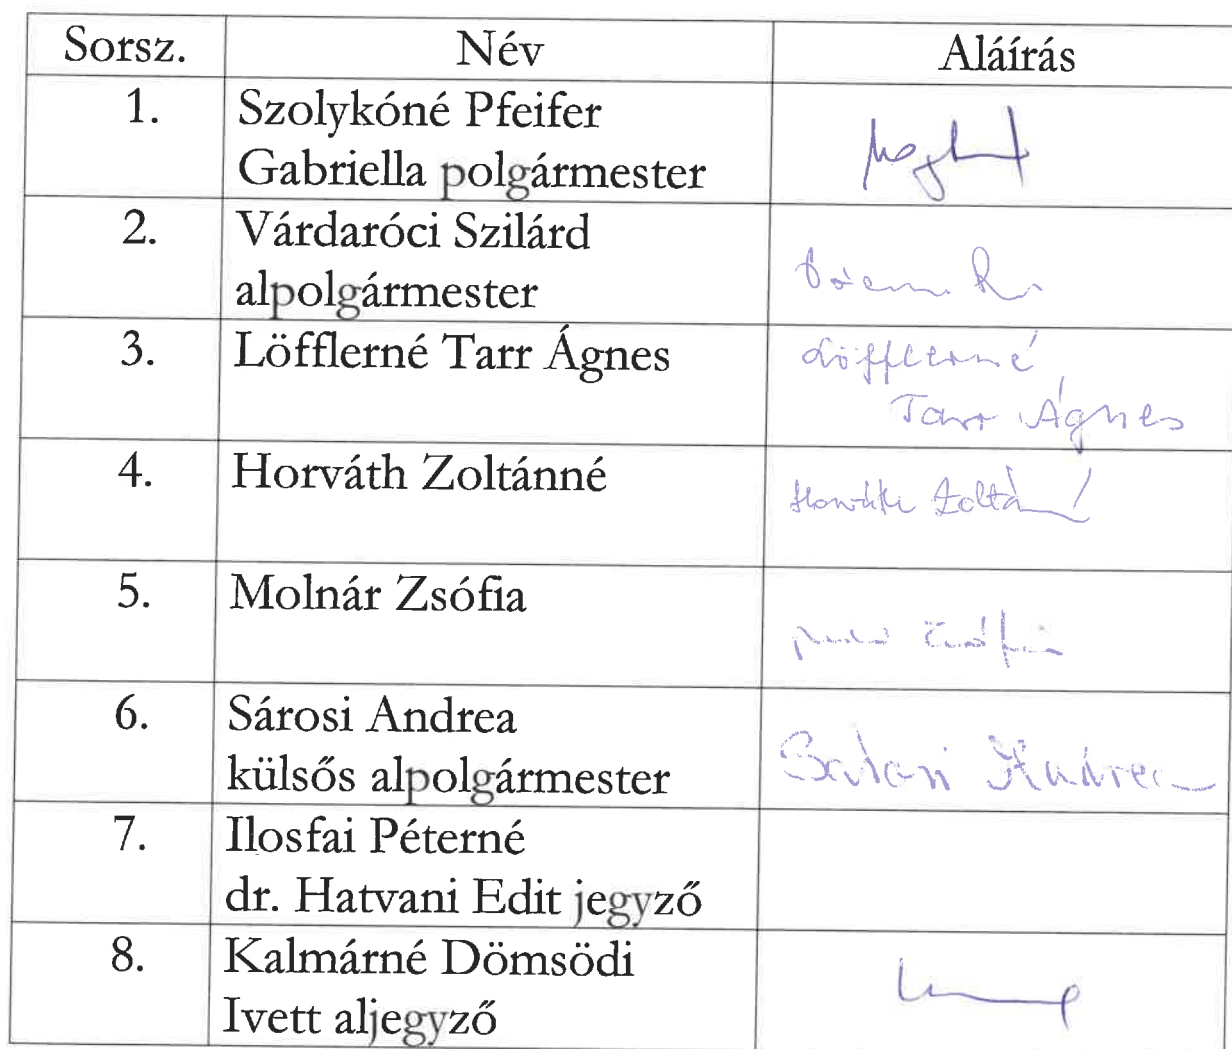 Sorsz. Név Aláírás
1. Szolykóné Pfeifer
Gabriella polgármester
2. Várdaróci Szilárd
alpolgármester
3. Löfflerné Tarr Ágnes Löfflerné
Tarr Ágnes
4. Horváth Zoltánné Horváth Zoltánné
5. Molnár Zsófia Molnár Zsófia
6. Sárosi Andrea Sárosi Andrea
külsős alpolgármester
7. Ilosfai Péterné
dr. Hatvani Edit jegyző
8. Kalmárné Dömsödi
Ivett aljegyző